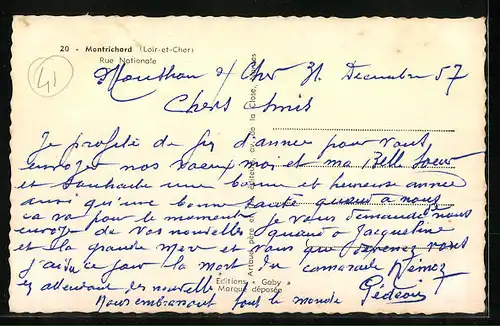 20 - Montrichard (Loir-et-Cher)
Rue Nationale
41
Monthou s/ Cher 31 Decembre 57
Chers Amis
Je profite de fin d'annee pour vous
envoyer nos voeux moi et ma Belle Soeur
et souhaite une bonne et heureuse année
ainsi qu'une bonne santé quand a nous
ca va pour le moment je vous demande nous
envoyer de vos nouvelles quand a Jacqueline
et la grande Mere et vous que
j'ai ce jour la mort du camarade
en attendant des nouvelles Gédéon
Nous embrassont tout le monde
Artaud, père et
de la Close, Nantes
"Editions Gaby"
Marque déposée